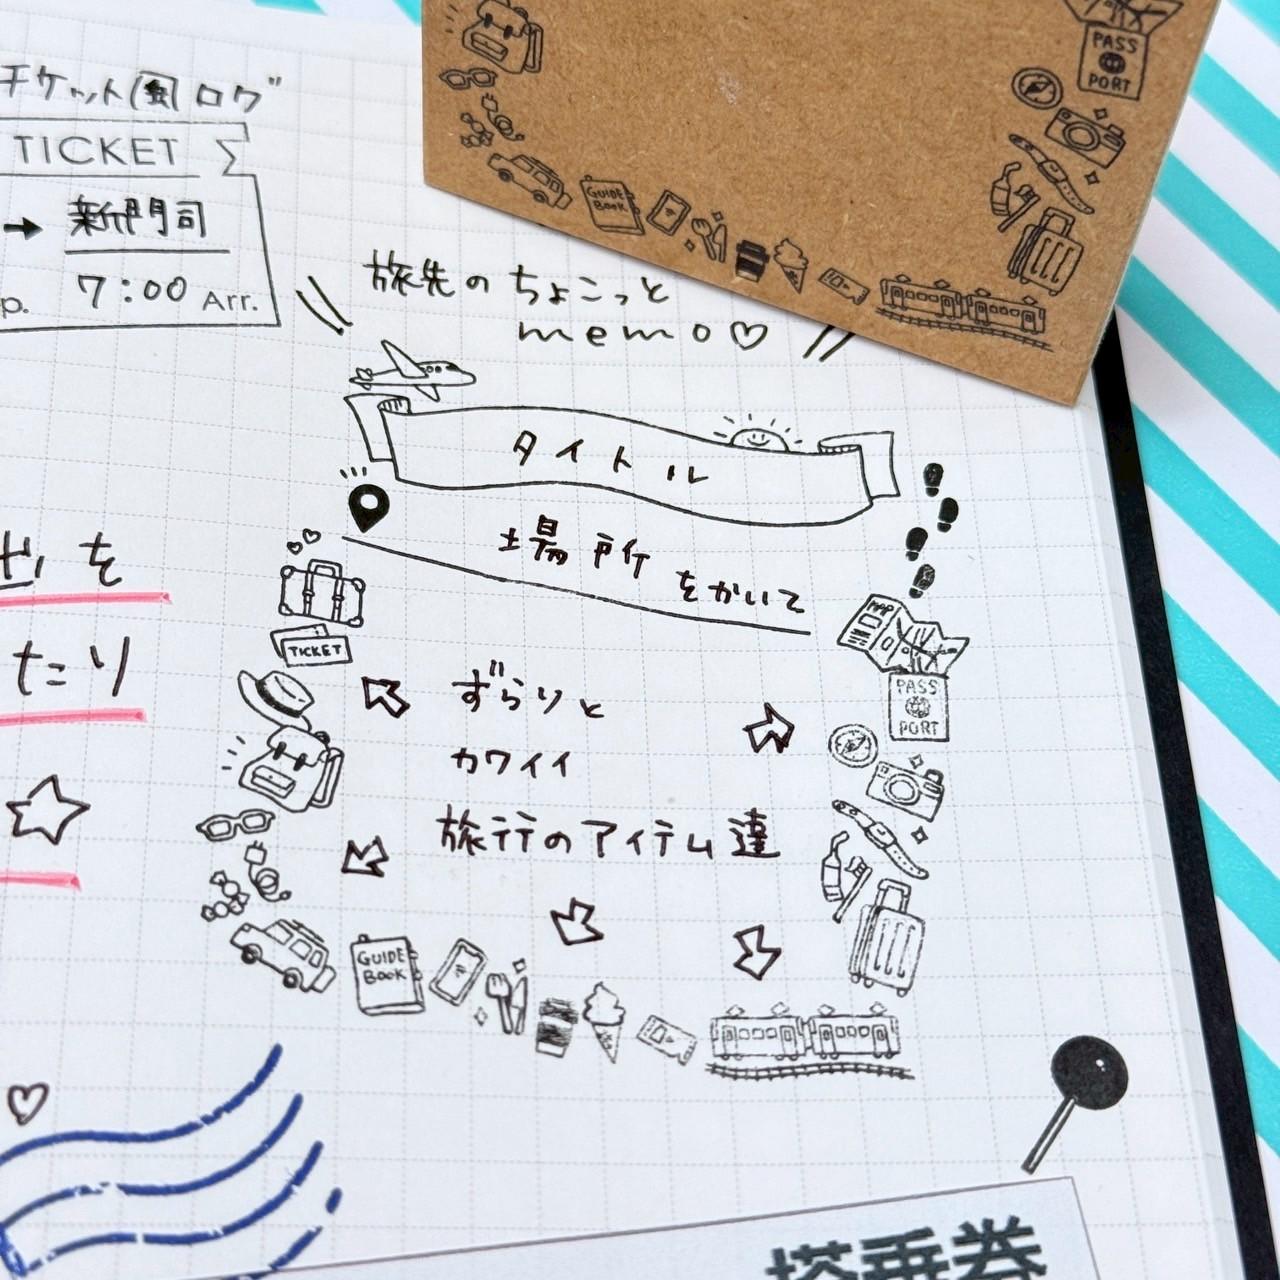 チケット風ログ
TICKET
→ 新門司
7:00 Arr.
旅先のちょこっと
memo♡
タイトル
場所をかいて
TICKET
MAP
PASS
PORT
ずらりと
カワイイ
旅行のアイテム達
GUIDE
BOOK
を
たり
搭乗券
PASS
PORT
GUIDE
BOOK